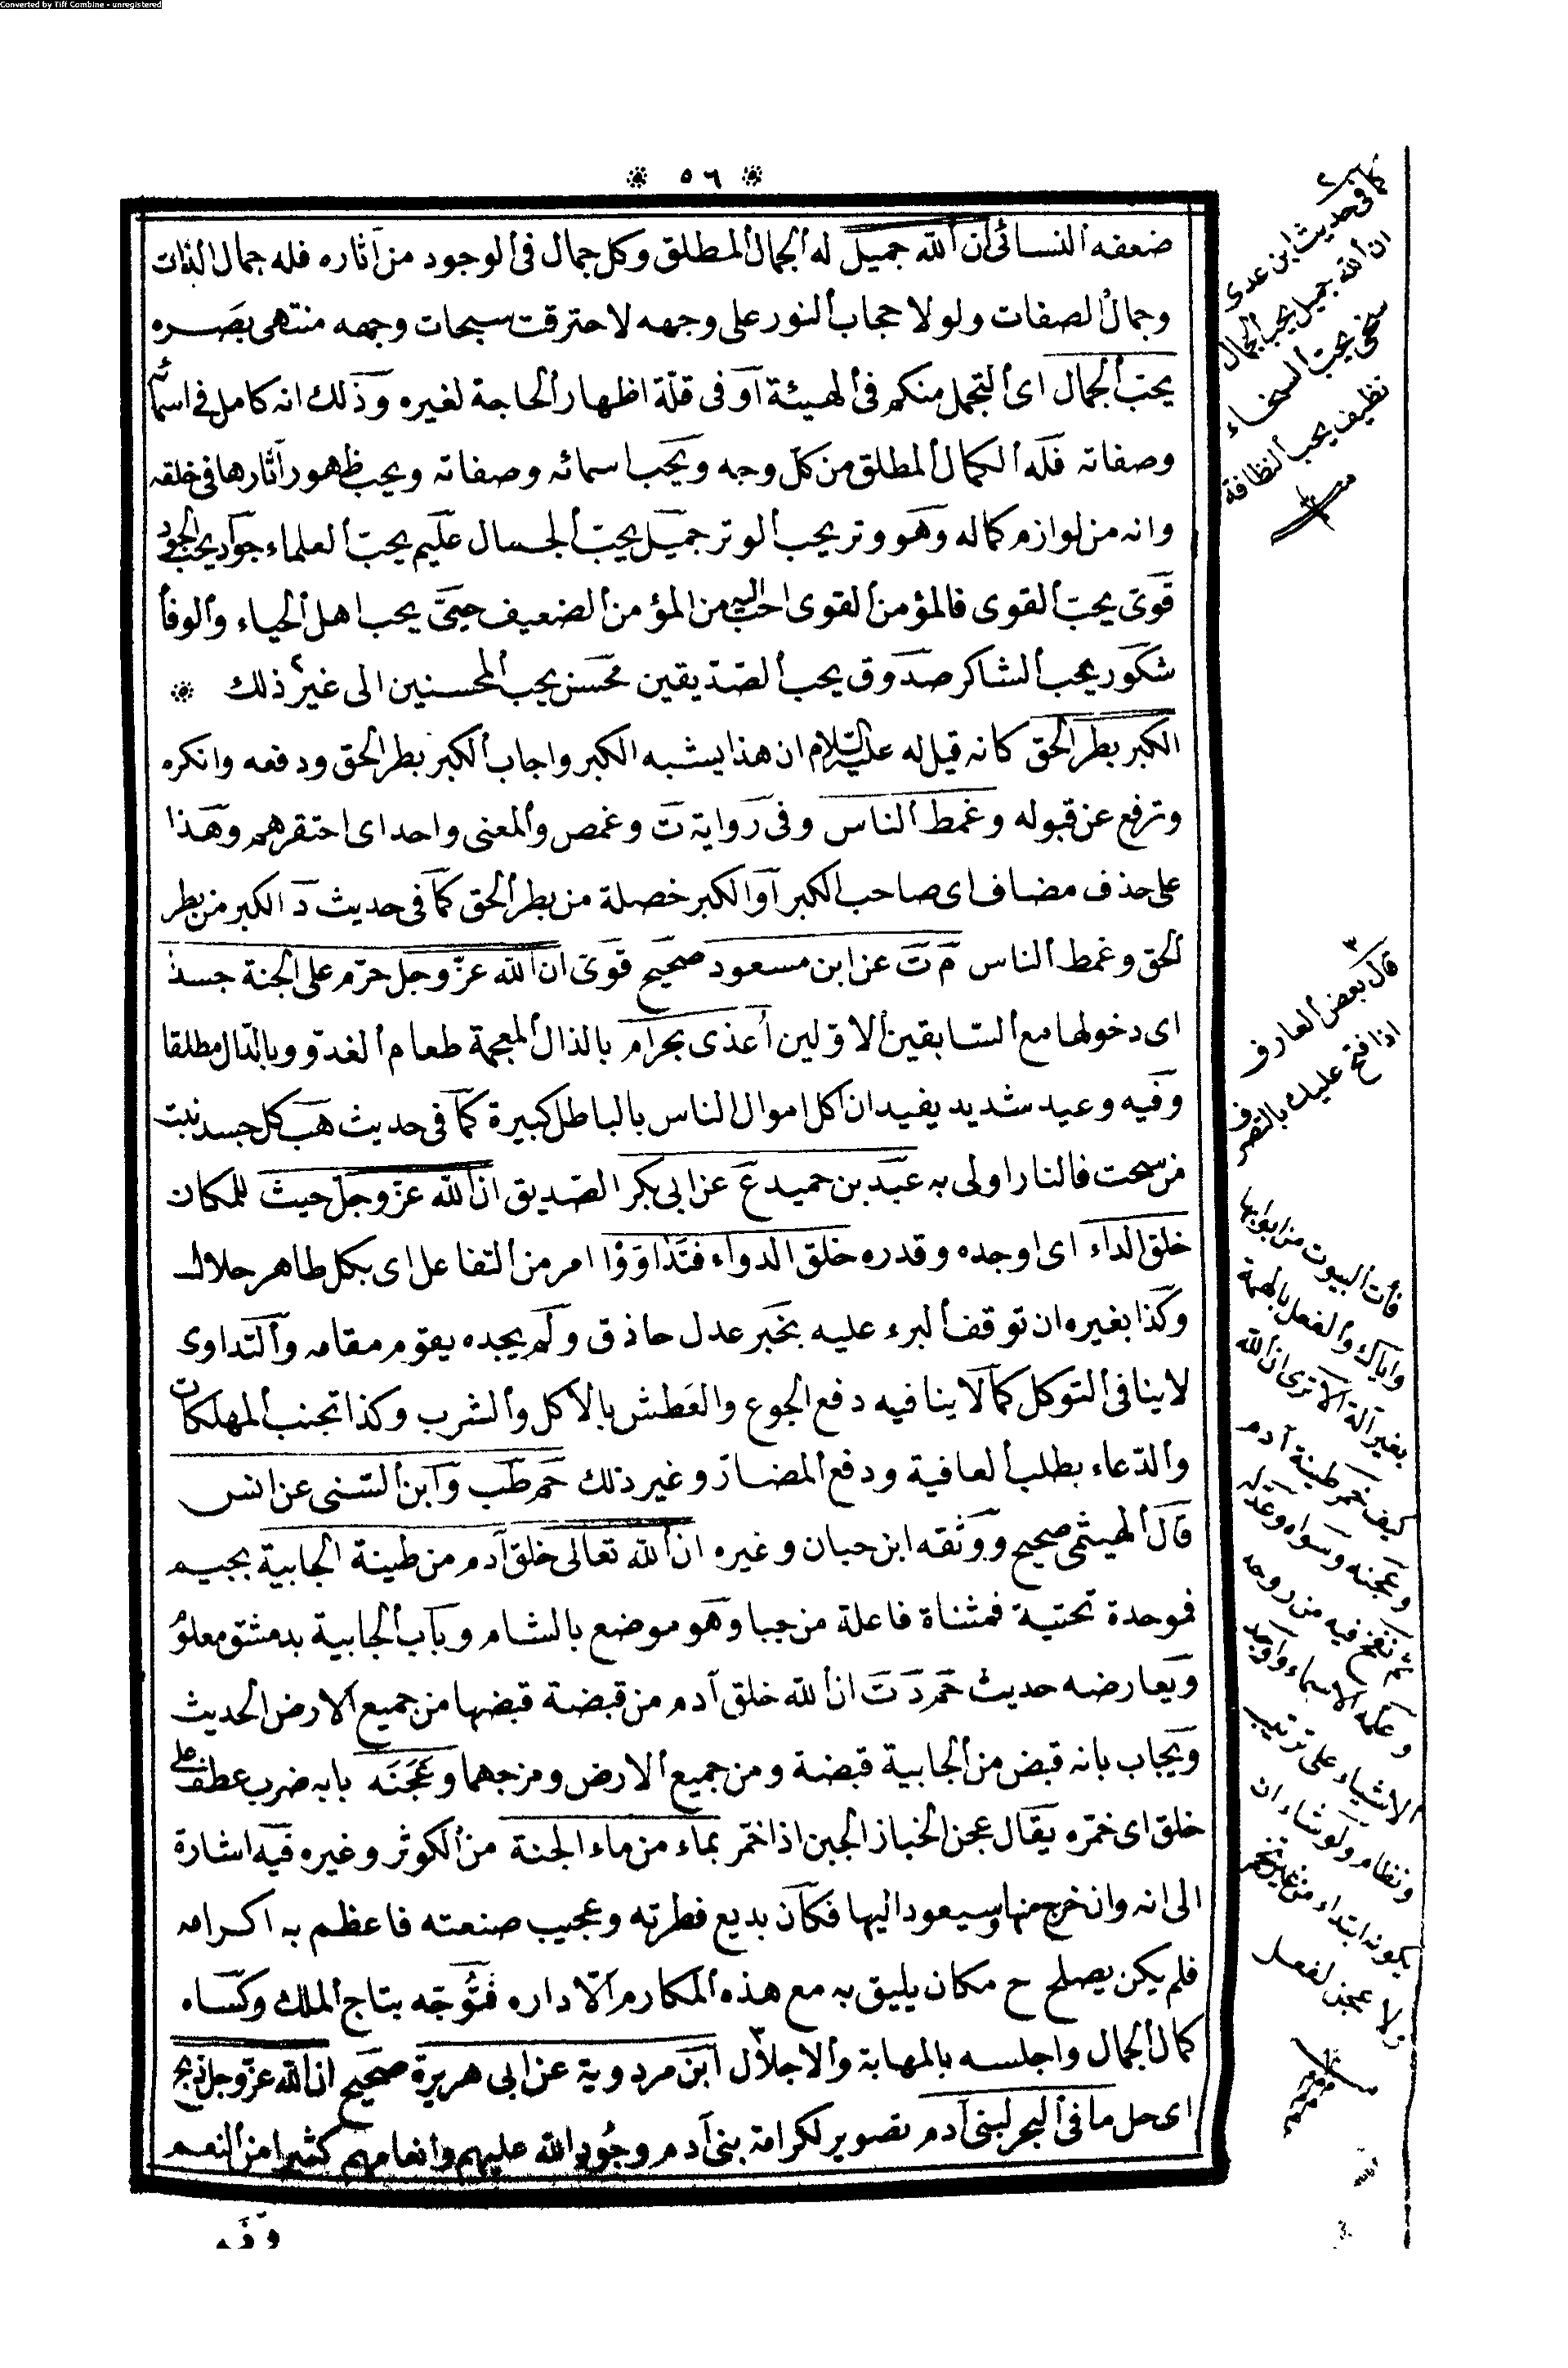 Converted by Tiff Combine - unregistered
٥٦
ضعفه النسائى ان الله جميل له الجمال المطلق وكل جمال فى الوجود من آثاره فله جمال الذات
وجمال الصفات ولولا حجاب النور على وجهه لاحترقت سبحات وجهه منتهى بصره
يحب الجمال اى التجمل منكم فى الهيئة أو فى قلة اظهار الحاجة لغيره وذلك انه كامل فى اسمائه
وصفاته فله الكمال المطلق من كل وجه ويحب اسمائه وصفاته ويحب ظهور آثارها فى خلقه
وانه من لوازم كماله وهو وتر يحب الوتر جميل يحب الجمال عليم يحب العلماء جواد يحب الجود
قوى يحب القوى فالمؤمن القوى احب اليه من المؤمن الضعيف حيى يحب اهل الحياء والوفا
شكور يحب الشاكر صدوق يحب الصديقين محسن يحب المحسنين الى غير ذلك
الكبر بطر الحق كانه قيل له عليه السلام ان هذا يشبه الكبر واجاب الكبر بطر الحق ودفعه وانكره
وترفع عن قبوله وغمط الناس وفى رواية ت وغمص والمعنى واحد اى احتقرهم وهذا
على حذف مضاف اى صاحب الكبر أو الكبر خصلة من بطر الحق كما فى حديث د الكبر من بطر
الحق وغمط الناس م ت عن ابن مسعود صحيح قوى ان الله عز وجل حرم على الجنة جسد
اى دخولها مع السابقين الاولين أغذى بحرام بالذال المعجمة طعام الغدو وبالدال مطلقا
وفيه وعيد شديد يفيد ان اكل اموال الناس بالباطل كبيرة كما فى حديث هب كل جسد نبت
من سحت فالنار اولى به عبد بن حميد ع عن ابى بكر الصديق ان الله عز وجل حيث للمكان
خلق الداء اى اوجده وقدره خلق الدواء فتداووا امر من التفاعل اى بكل طاهر حلال
وكذا بغيره ان توقف البرء عليه بخبر عدل حاذق ولم يجده يقوم مقامه والتداوى
لا ينافى التوكل كما لا ينافيه دفع الجوع والعطش بالأكل والشرب وكذا تجنب المهلكات
والدعاء بطلب العافية ودفع المضار وغير ذلك حم طب وابن السنى عن انس
قال الهيثمى صحيح ووثقه ابن حبان وغيره ان الله تعالى خلق آدم من طينة الجابية بجيم
فموحدة تحتية فمثناة فاعلة من جبا وهو موضع بالشام وباب الجابية بدمشق معلوم
ويعارضه حديث حم د ت ان الله خلق آدم من قبضة قبضها من جميع الارض الحديث
ويجاب بانه قبض من الجابية قبضة ومن جميع الارض ومزجهما وعجنه بابه ضرب عطف على
خلق اى خمره يقال عجن الخباز الجبن اذا خمر بماء من ماء الجنة من الكوثر وغيره فيه اشارة
الى انه وان خرج منها وسيعود اليها فكان بديع فطرته وعجيب صنعته فاعظم به اكرامه
فلم يكن يصلح ح مكان يليق به مع هذه المكارم الا داره فتوجه بتاج الملك وكساه
كمال الجمال واجلسه بالمهابة والاجلال ابن مردوية عن ابى هريرة صحيح ان الله عز وجل ذبح
اى حل ما فى البحر لبنى آدم تصوير لكرامة بنى آدم وجود الله عليهم وانعامهم كثيرا من النعم
كما فى حديث ابن عدى
ان الله جميل يحب الجمال
سخى يحب السخاء
نظيف يحب النظافة
قال بعض العارف
اذا فتح عليك بالتصرف
فأت البيوت من ابوابها
واياك والفعل بالهمة
بغير آلة الا ترى ان الله
كيف خمر طينة آدم
وعجنه وسواه وعدله
ثم نفخ فيه من روحه
وعلمه الاسماء واوجد
الاشياء على ترتيب
ونظام ولو شاء ان
يكونه ابتداء من غير تخمر
ولا عجن لفعل